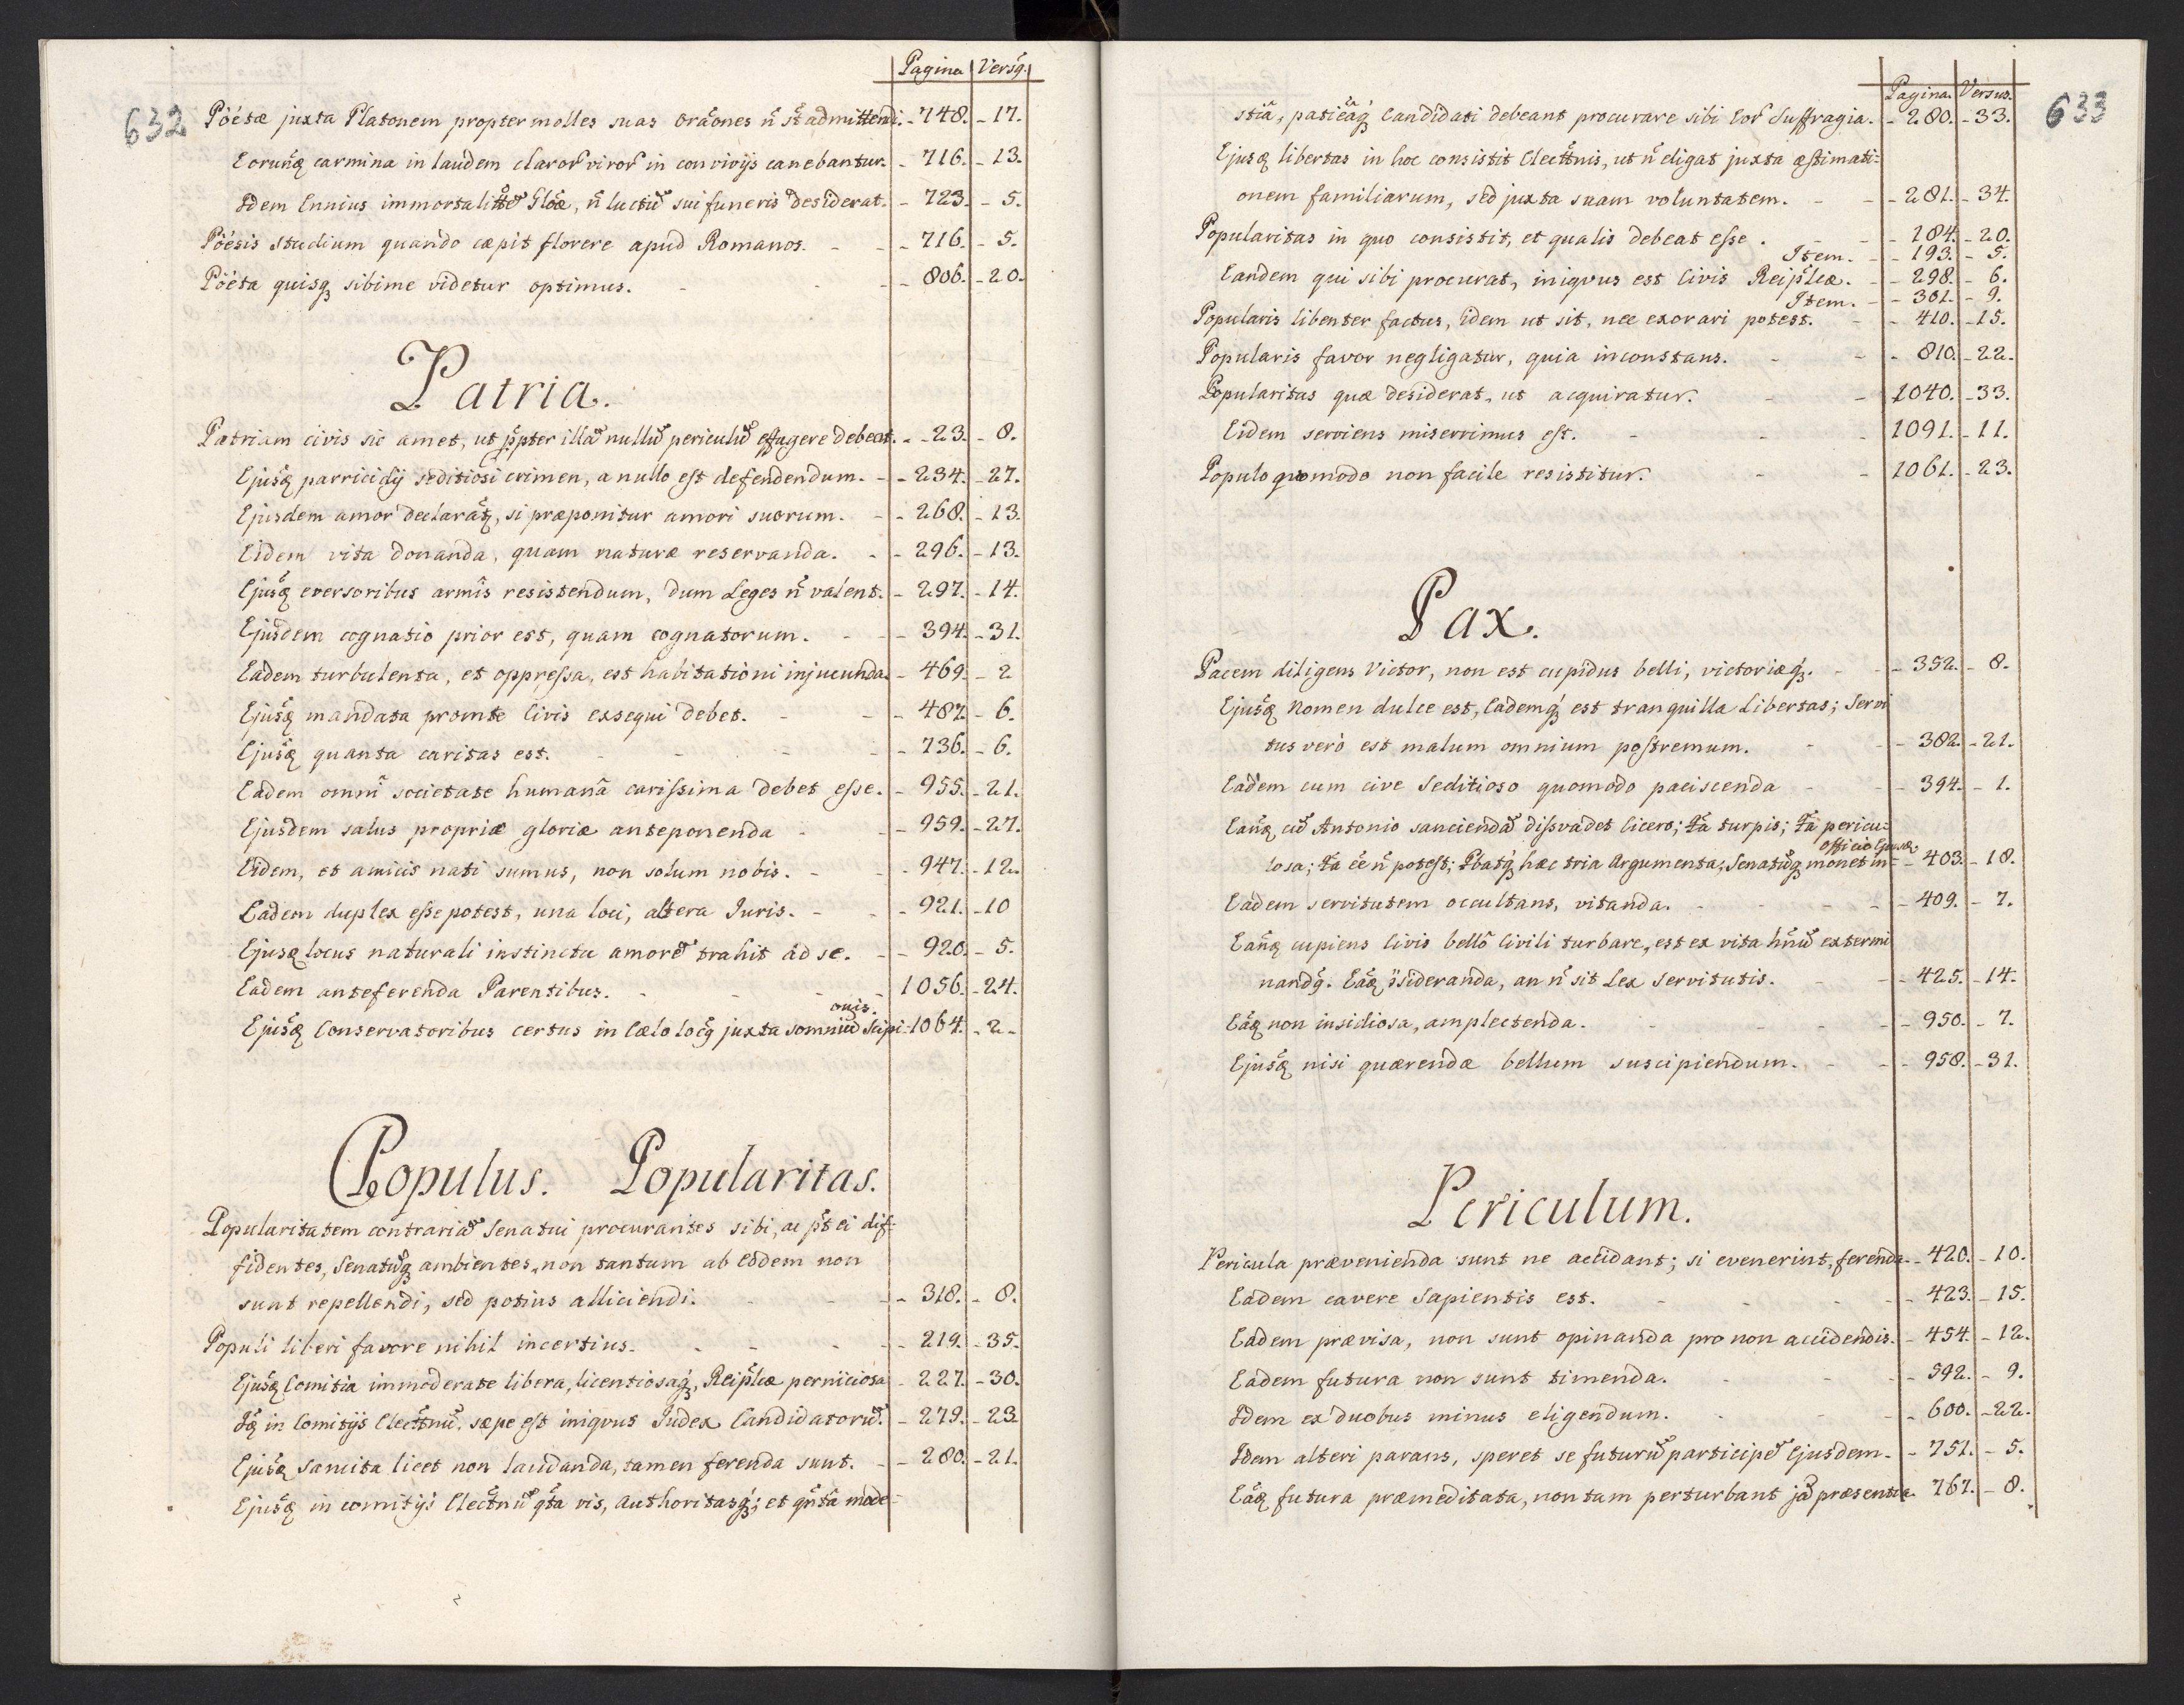 Pagina Versꝰ.
632 Pöétæ juxta Platonem propter molles suas orãones ñ st̃ admittendi. - 748. - 17.
Eorund̃ carmina in laudem claror̃ viror̃ in convivijs canebantur. - 716. - 13.
Idem Ennius immortalitt̃e Glõæ, ñ luctũ sui funeris desiderat. - 723. - 5.
Pöésis studium quando cæpit florere apud Romanos. - - 716. - 5.
Pöéta quisq̃ sibime videtur optimus. - - 806. - 20.
Patria.
Patriam civis sic amet, ut p̃pter illã nullũ periculũ effugere debeat. - 23. - 8.
Ejusd̃ parricidij seditiosi crimen, a nullo est defendendum. - - 234. - 27.
Ejusdem amor declarat̃, si præponitur amori suorum. - - 268. - 13.
Eidem vita donanda, quam naturæ reservanda. - - 296. - 13.
Ejusd̃ eversoribus armis resistendum, dum Leges ñ valent. - 297. - 14.
Ejusdem cognatio prior est, quam cognatorum. - - 394. - 31.
Eadem turbulenta, et oppressa, est habitationi injucunda. - 469. - 2
Ejusd̃ mandata promte Civis exsequi debet. - - 487. - 6.
Ejusd̃ quanta caritas est. - - - 736. - 6.
Eadem omni societate humana carissima debet esse. - 955. - 21.
Ejusdem salus propriæ gloriæ anteponenda - - 959. - 27.
Eidem, et amicis nati sumus, non solum nobis. - - 947. - 12.
Eadem duplex esse potest, una loci, altera Juris. - - 921. - 10
Ejusd̃ locus naturali instinctu amorẽ trahit ad se. - - 920. - 5.
Eadem anteferenda Parentibus. - - - 1056. - 24.
onis.
Ejusd̃ Conservatoribus certus in Cælo locꝰ juxta somniũ Scipi- 1064. - 2 -
Populus. Popularitas.
Popularitatem contrariã Senatui procurantes sibi, ac p̃t ei dif-
fidentes, Senatũq̃ ambientes, non tantum ab Eodem non
sunt repellendi, sed potius alliciendi. - - - 318. - 8.
Populi liberi favore nihil incertius. - - - 219. - 35.
Ejusd̃ Comitia immoderate libera, licentiosaq̃, Reip̃licæ perniciosa - 227. - 30.
Id̃ in Comitijs Elect̃nũ, sæpe est iniqvus Judex Candidatorũ. - 279. - 23
Ejusd̃ sancita licet non laudanda, tamen ferenda sunt. - - 280. - 21.
Ejusd̃ in comitijs Elect̃nũ q̃ta vis, Authoritasq̃; et q̃nta mode-
Pagina. Versus. 633
stia, patiẽtiaq̃ Candidati debeant procurare sibi Eor̃ Suffragia. - 280. - 33.
Ejusd̃ libertas in hoc consistit Elect̃nis, ut ñ eligat juxta æstimati-
onem familiarum, sed juxta suam voluntatem. - - 281. - 34.
Popularitas in quo consistit, et qualis debeat esse. - - 184. - 20.
Item. - - 193. - 5.
Eandem qui sibi procurat, iniqvus est Civis Reip̃licæ. - - 298. - 6.
Item. - - 301. - 9.
Popularis libenter factus, idem ut sit, nec exorari potest. - - 410. - 15.
Popularis favor negligatur, quia inconstans. - - - 810. - 22.
Popularitas quæ desiderat, ut acquiratur. - - 1040. - 33.
Eidem serviens miserrimus est. - - - 1091. - 11.
Populo quomodo non facile resistitur. - - 1061. - 23.
Pax.
Pacem diligens Victor, non est cupidus belli, victoriæq̃. - - 352. - 8.
Ejusd̃ Nomen dulce est, Eademq̃ est tranquilla Libertas; Servi
tus verò est malum omnium postremum. - - 382. - 21.
Eadem cum cive Seditioso quomodo paciscenda - - 394. - 1.
Eand̃ cũ Antonio sanciendã dissvadet Cicero; t̃a turpis; t̃a pericu-
officio Ejusd̃
losa; t̃a ẽe ñ potest; Pbatq̃ hæc tria Argumenta; Senatũq̃ monet in - 403. - 18.
Eadem servitutem occultans, vitanda. - - - - 409. - 7.
Eand̃ cupiens Civis bellô Civili turbare, est ex vita hñũ extermi
nandꝰ. Ead̃ ꝯsideranda, an ñ sit Lex servitutis. - - 425. - 14.
Ead̃ non insidiosa, amplectenda. - - - - 950. - 7.
Ejusd̃ nisi quærendæ bellum suscipiendum. - - - 958. - 31.
Periculum.
Pericula prævenienda sunt ne accidant; si evenerint, ferenda - 420. - 10.
Eadem cavere Sapientis est. - - - - 423. - 15.
Eadem prævisa, non sunt opinanda pro non accidendis. - 454. - 12.
Eadem futura non sunt timenda. - - - 592. - 9.
Idem ex duobus minus eligendum. - - - 600. - 22.
Idem alteri parans, speret se futurũ participẽ Ejusdem. - 751. - 5.
Ead̃ futura præmeditata, non tam perturbant jã præsentia. 767. - 8.